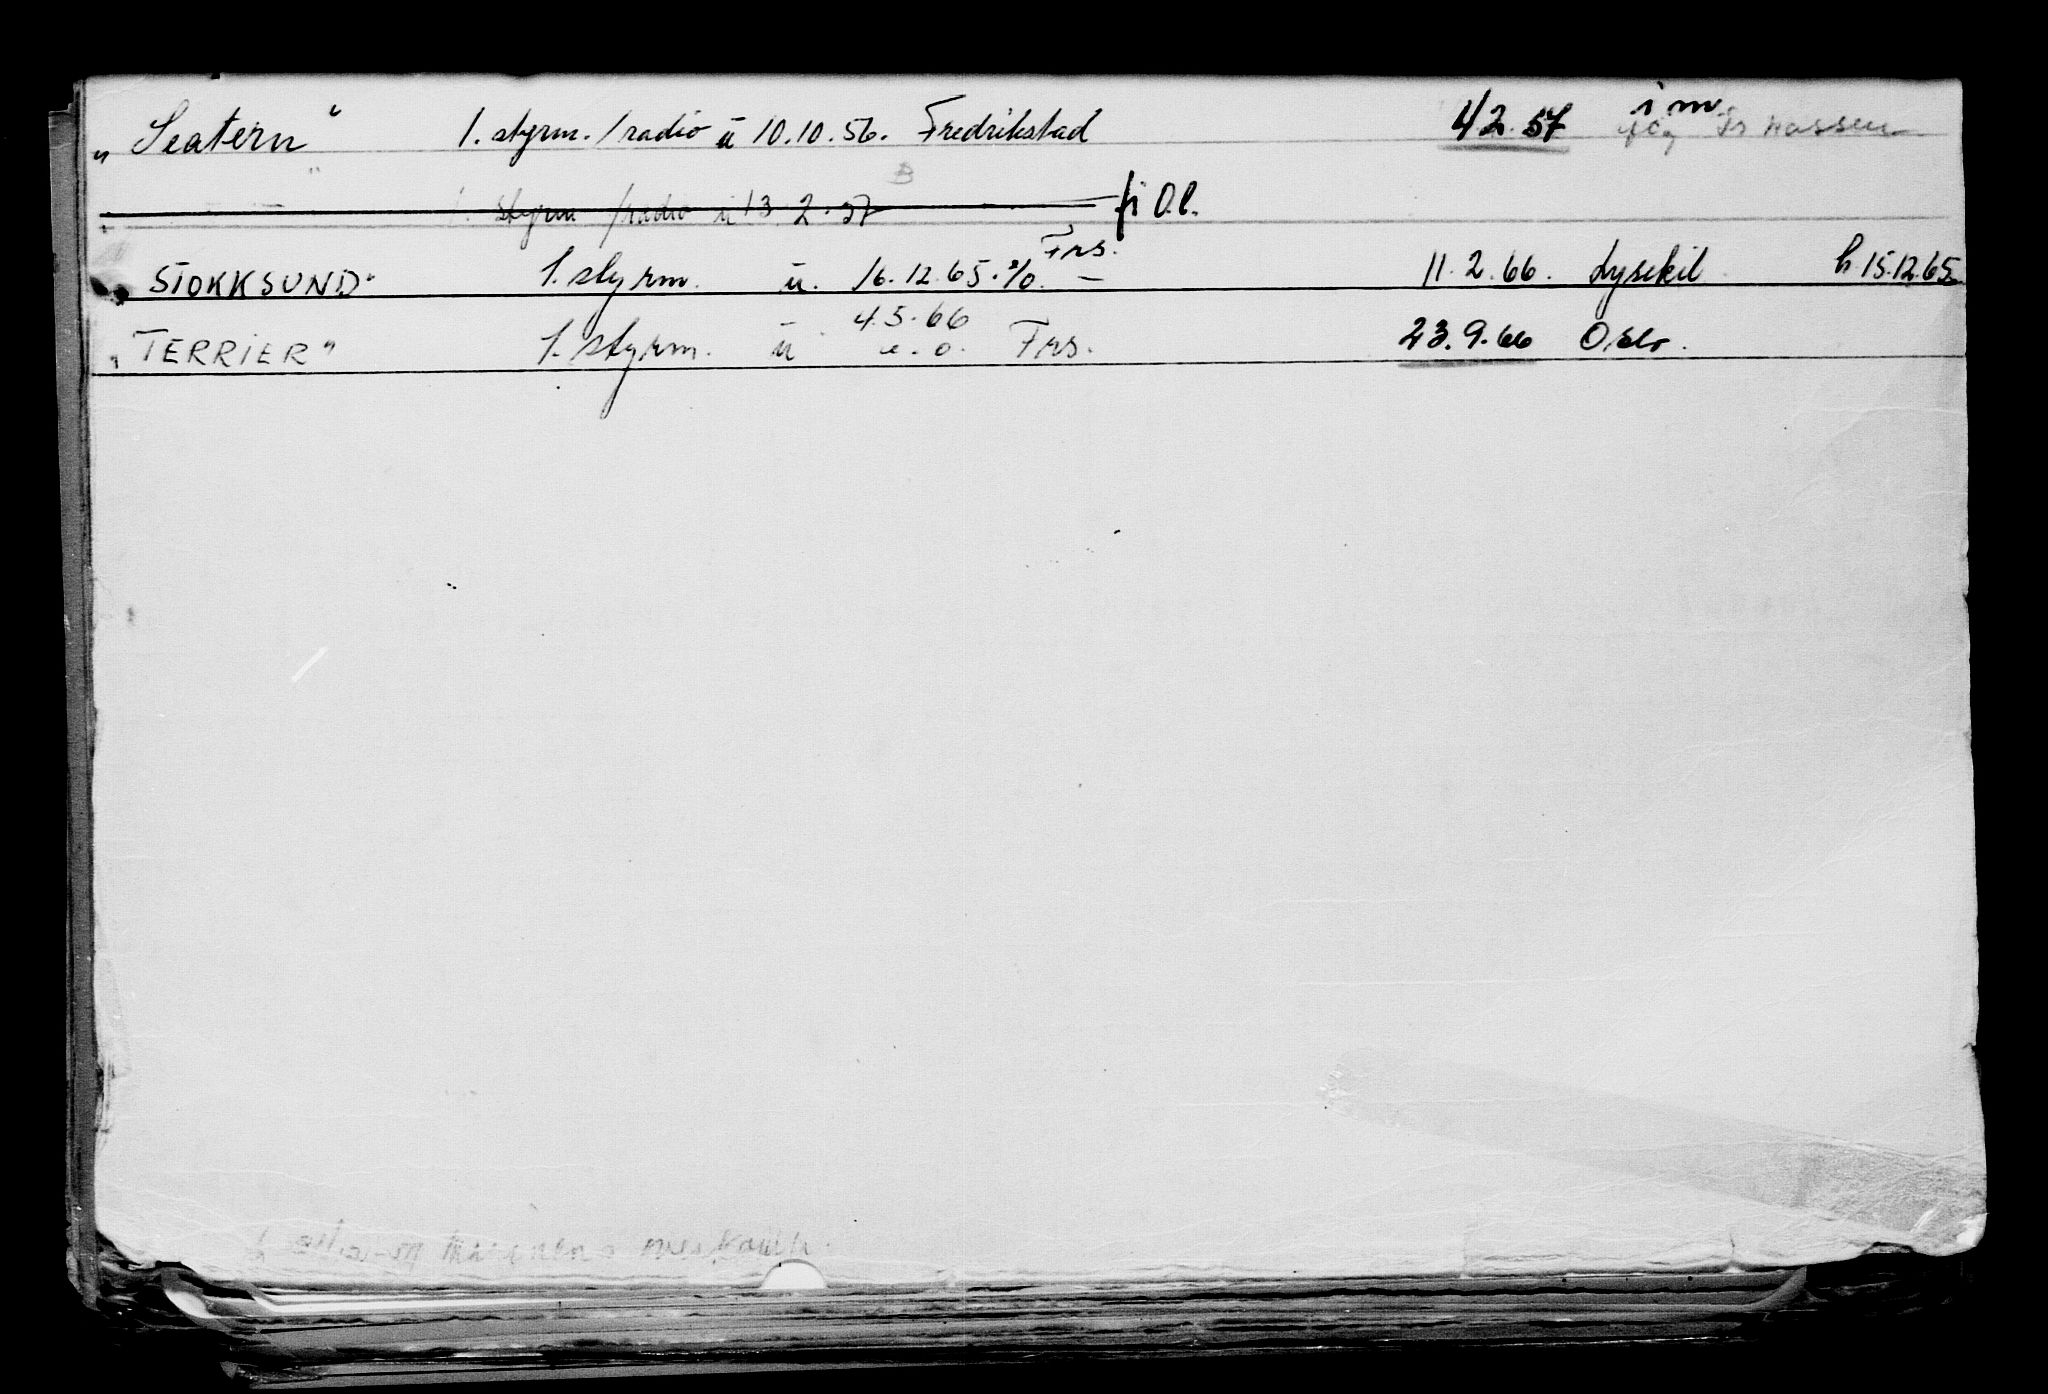 „Seatern“ 1. styrm. /radio ü 10.10.56. Fredrikstad 4/2.57 i m.
1. styrm /radio ü 13.2.57 B fi O.l.
„STOKKSUND“ 1. styrm. ü. 16.12.65. Frs. — 11.2.66. Lysekil h 15.12.65
„TERRIER“ 1. styrm. ü 4.5.66 e.o. Frs. 23.9.66 Oslo.